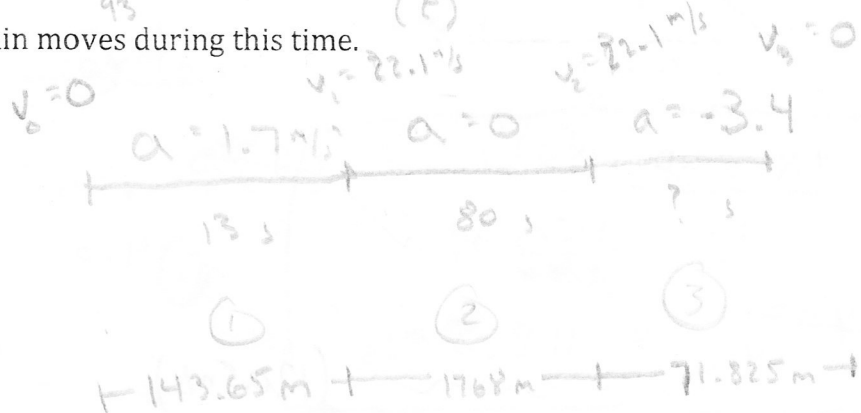 93 (t)
in moves during this time.
v₀=0 v₁=22.1 m/s v₂=22.1 m/s v₃=0
a=1.7 m/s² a=0 a=-3.4
13 s 80 s ? s
1 2 3
143.65 m 1768 m 71.825 m